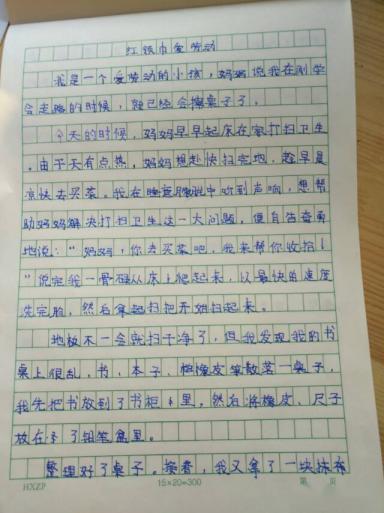 红领巾爱劳动
我是一个爱劳动的小孩，妈妈说我在刚学
会走路的时候，就已经会擦桌子了。
今天的时候，妈妈早早起床在家打扫卫生
。由于天有点热，妈妈想赶快扫完地，趁早晨
凉快去买菜。我在睡意朦胧中听到声响，想帮
助妈妈解决打扫卫生这一大问题，便自告奋勇
地说：“妈妈，你去买菜吧，我来帮你收拾！
”说完我一骨碌从床上爬起来，以最快的速度
洗完脸，然后拿起扫把开始扫起来。
地板不一会就扫干净了，但我发现我的书
桌上很乱，书、本子、橡皮笔散落一桌子，
我先把书放到了书柜里。然后将橡皮、尺子
放在了铅笔盒里。
整理好了桌子。接着，我又拿了一块抹布
HXZP 15×20=300 第 页